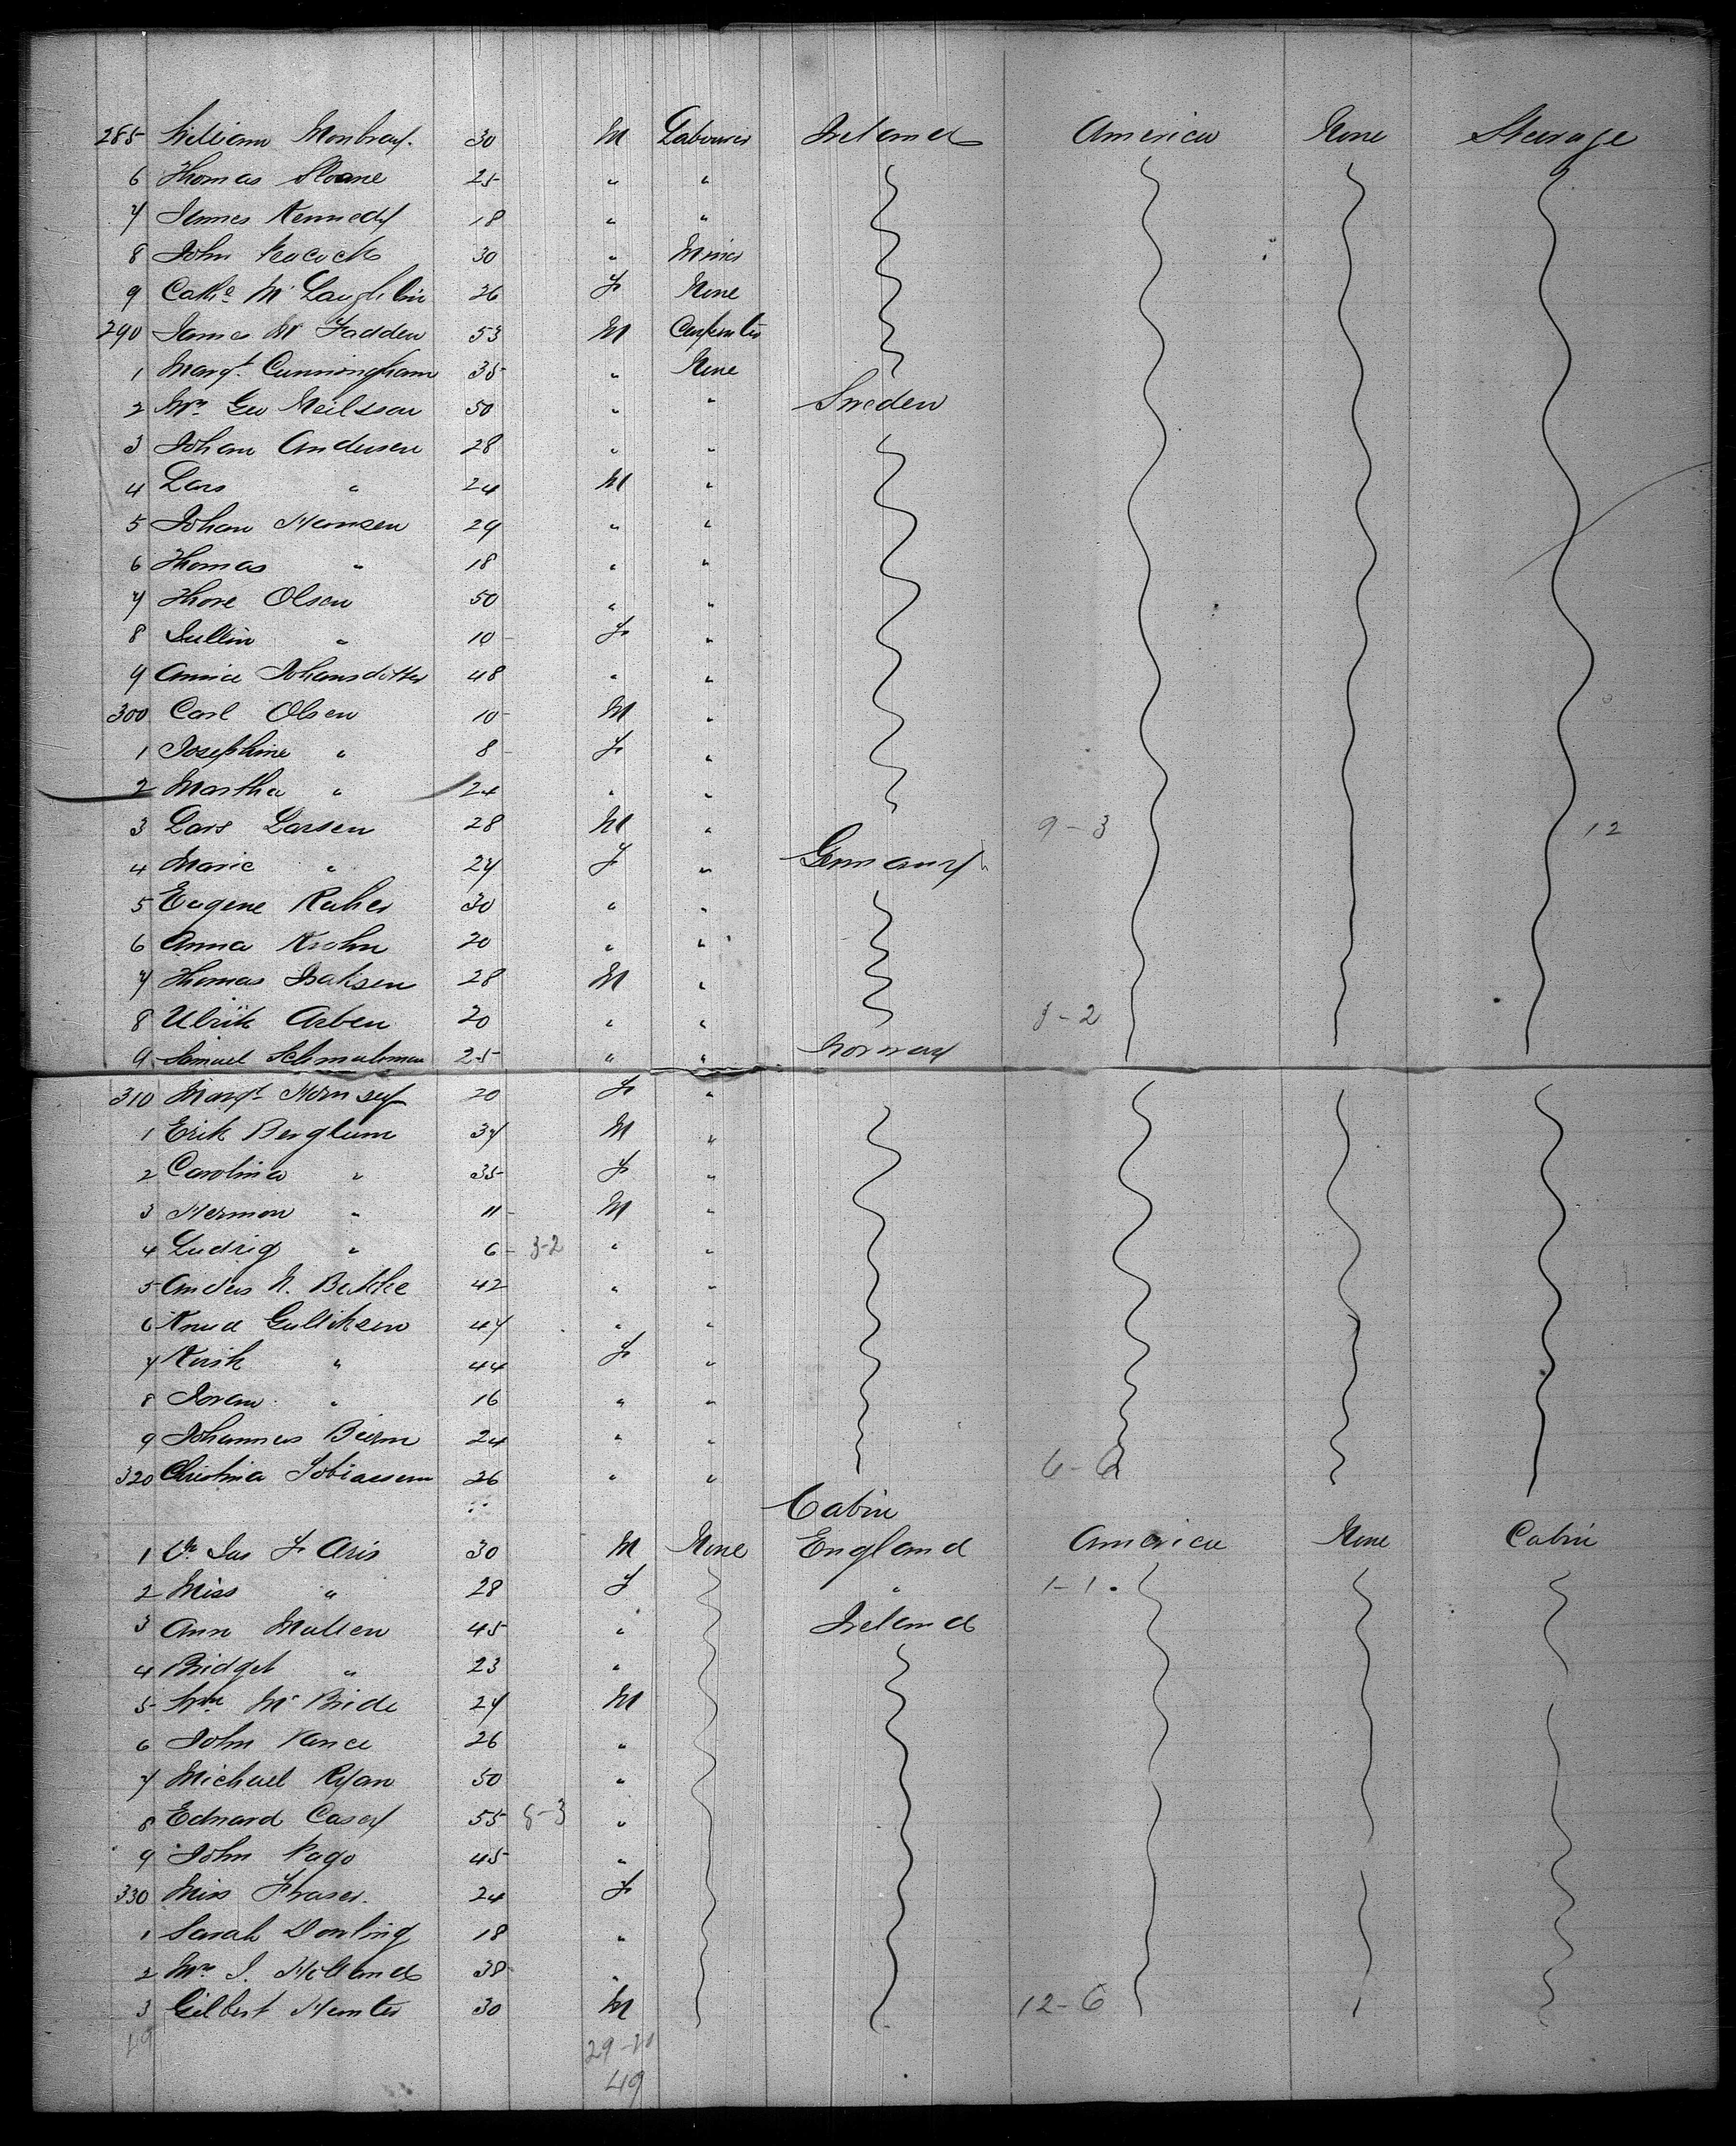 285 William Monbray. 30 M Labourer Ireland America None Steerage
6 Thomas Sloane 25 " "
7 James Kennedy 18 " "
8 John Peacock 30 " Miner
9 Cathe McLaughlin 26 F None
290 James McFadden 53 M Carpenter
1 Margt. Cunningham 35 " None
2 Geo Neilsson 50 " " Sweden
3 Johan Andersen 28 " "
4 Lars " 24 M "
5 Johan Hansen 29 " "
6 Thomas " 18 " "
7 Thore Olsen 50 " "
8 " 10 F "
9 Annie Johansdotter 48 " "
300 Carl Olsen 10 M "
1 Josephine " 8 F "
2 Martha " 24 " "
3 Lars Larsen 28 M " 9-3 12
4 Marie " 27 F " Germany
5 Eugene 30 " "
6 Anna Krohn 20 " "
7 Thomas Isaksen 28 M "
8 Ulrik Arben 20 " " 3-2
9 Samuel 25 " " Norway
310 Margt. Hornsey 20 F "
1 Erik Berglum 37 M "
2 Carolina " 35 F "
3 Hermon " 11 M "
4 Ludvig " 6 3-2 " "
5 Anders N. Bekke 42 " "
6 Knud Gulliksen 47 " "
7 " 44 F "
8 " 16 " "
9 Johannes 24 " "
320 Christina Tobiassen 26 " " 6-6
Cabin
1 Jas F Aris 30 M None England America None Cabin
2 Miss " 28 F " 1-1
3 Ann Mullen 45 " Ireland
4 Bridget " 23 "
5 Wm McBride 27 M
6 John Vance 26 "
7 Michael Ryan 50 "
8 Edward Casey 55 8-3 "
9 John Pago 45 "
330 Miss Fraser. 24 F
1 Sarah Dowling 18 "
2 J. Holland 38 "
3 Gilbert Hunter 30 M 12-6
49 29-20
49